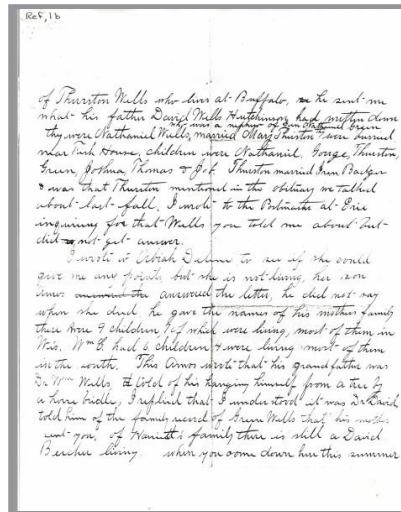 Ref, 1b
of Thurston Wells who lives at Buffalo, he sent me
what his father David Wells Hutchinson had written down
who was a nephew of Gen Nathaniel Green
they were Nathaniel Wells, married Mary Thurston & were buried
near Tush House, children were Nathaniel, Gorge, Thurston,
Green, Joshua, Thomas & Job. Thurston married Irena Badger
& was that Thurston mentioned in the obituary we talked
about last fall. I wrote to the Postmaster at Erie
inquiring for that Wells you told me about but
did not get answer.
I wrote to Deline to see if she could
give me any points but she is not living, her son
Amos answered the answered the letter, he did not say
when she died, he gave the names of his mothers family
there were 9 children of which were living, most of them in
Wis. Wm B. had 6 children 4 were living most of them
in the south. This Amos wrote that his grandfather was
Dr Wm Wells, told of his hanging himself from a tree by
a horse bridle, I replied that I understood it was Dr David
told him of the family record of Green Wells that his mother
sent you, of Harriett's family there is still a David
Beecher living. when you come down here this summer